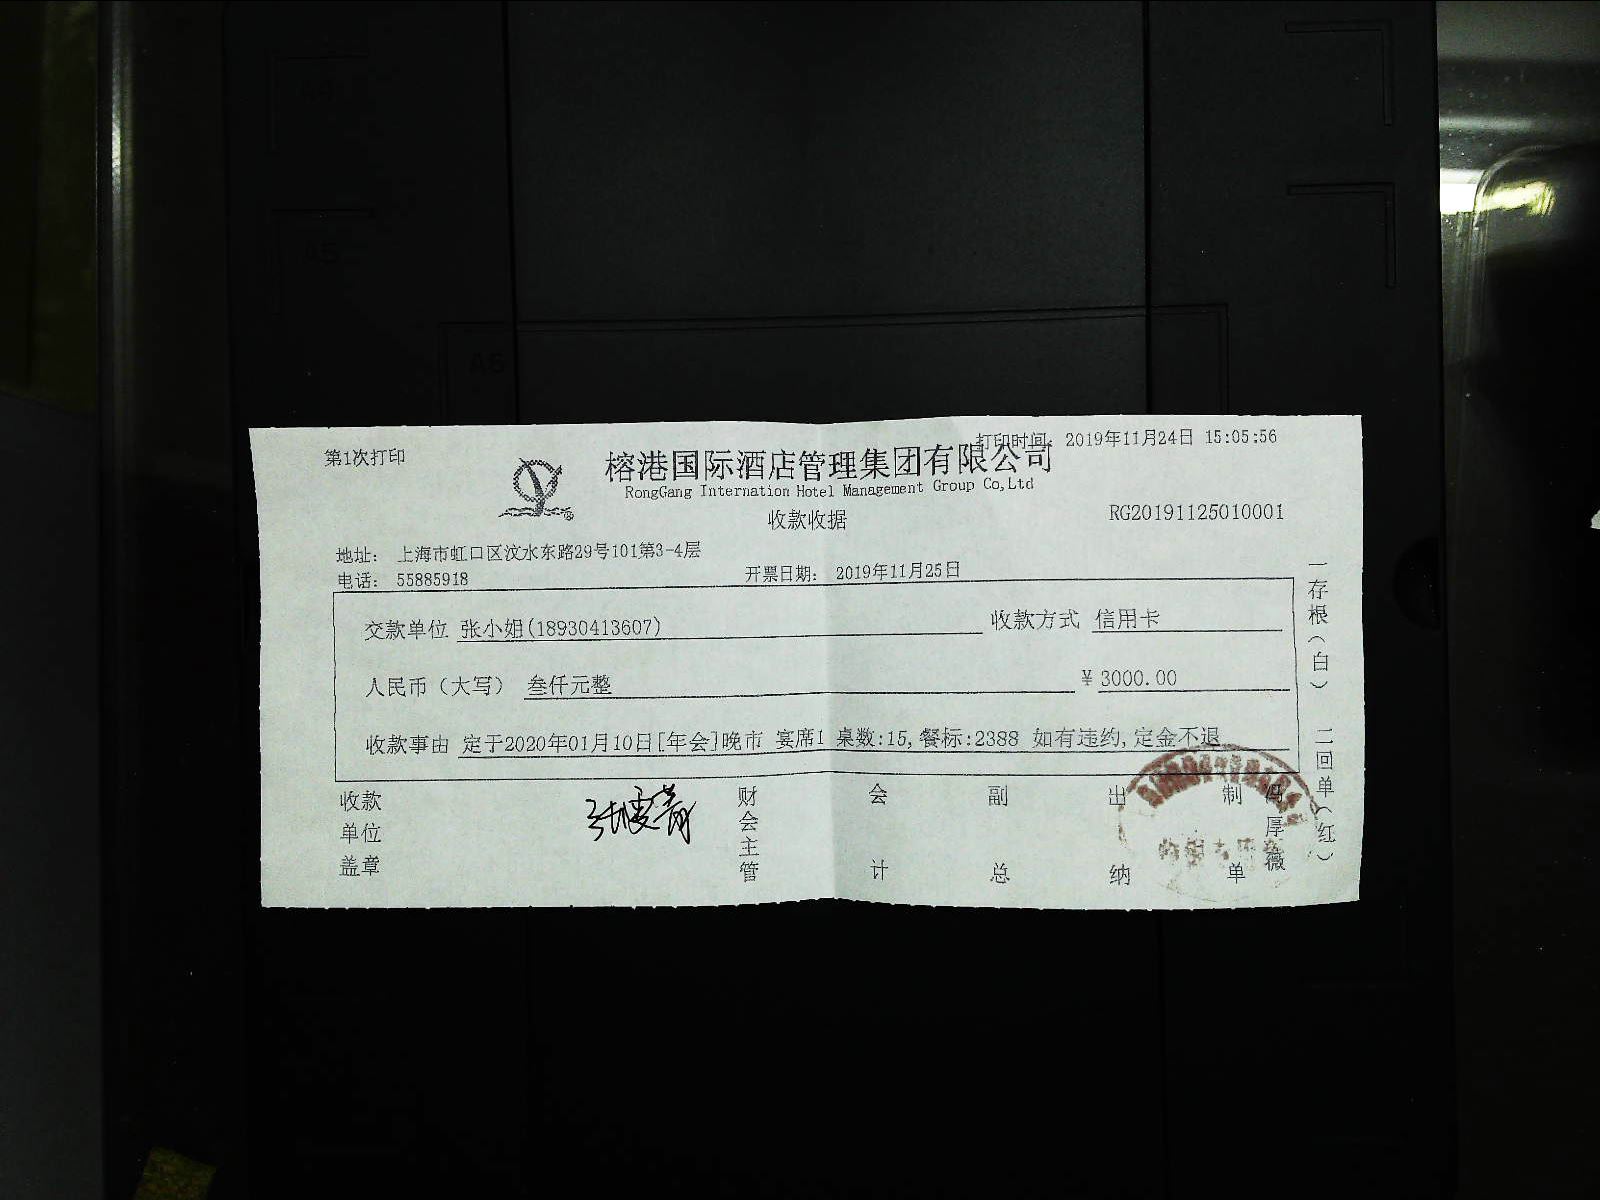 A4
A5
A6
第1次打印
打印时间: 2019年11月24日 15:05:56
榕港国际酒店管理集团有限公司
RongGang Internation Hotel Management Group Co,Ltd
收款收据
RG20191125010001
地址: 上海市虹口区汶水东路29号101第3-4层
电话: 55885918
开票日期: 2019年11月25日
交款单位 张小姐(18930413607)
收款方式 信用卡
人民币（大写） 叁仟元整
¥ 3000.00
收款事由 定于2020年01月10日[年会]晚市 宴席1 桌数:15,餐标:2388 如有违约,定金不退
收款单位盖章
财会主管
会计
副总
出纳
制单
厚薇
一存根（白） 二回单（红）